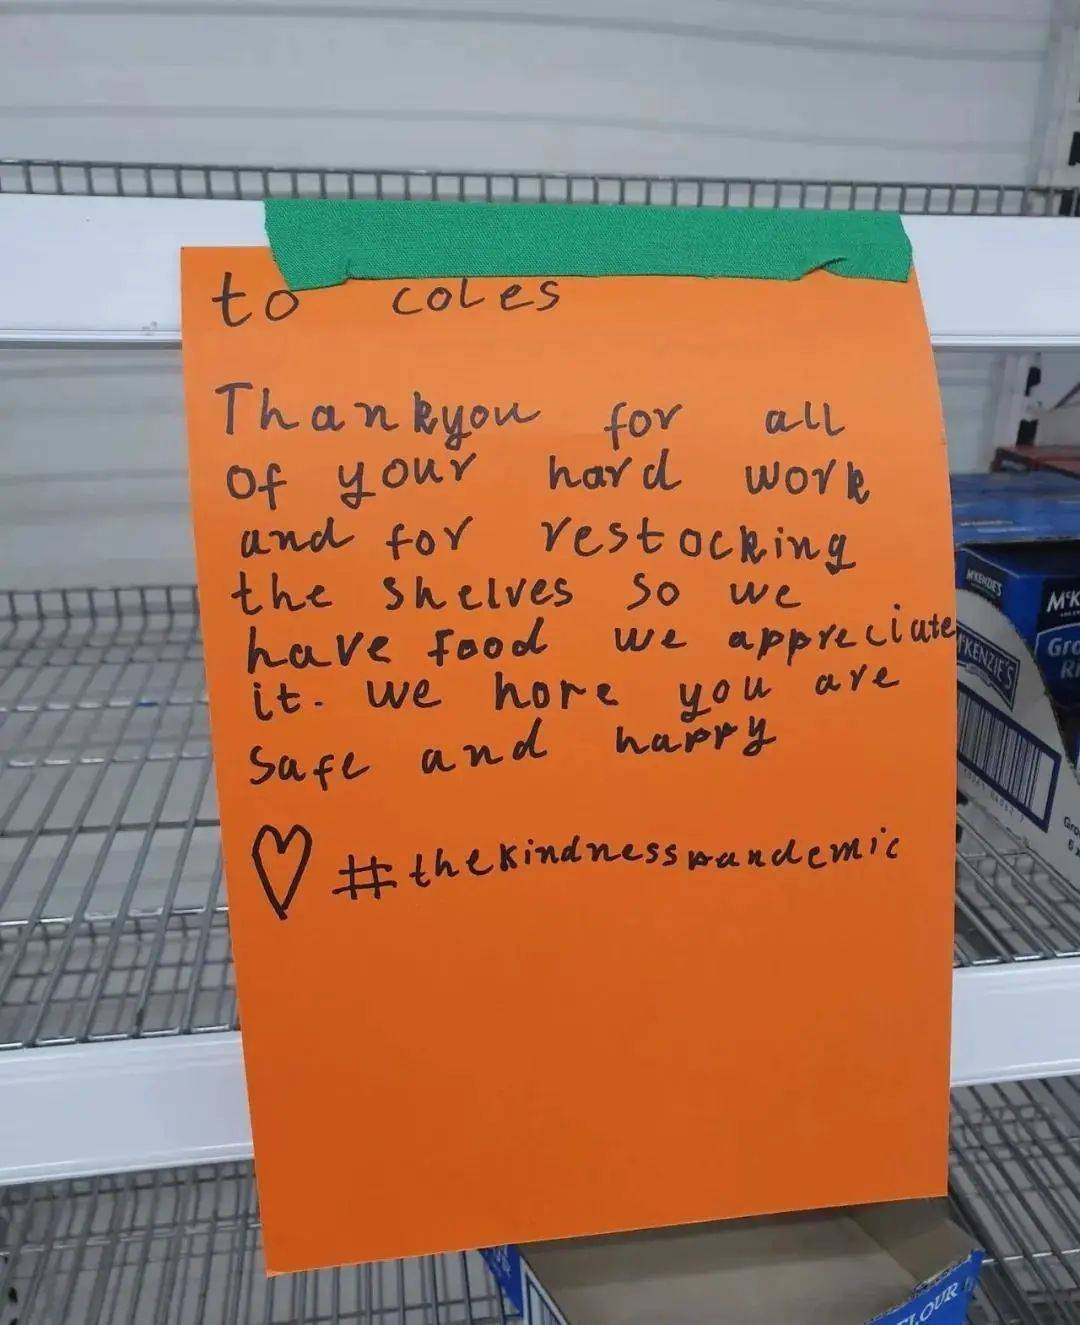 to coles
Thankyou for all
of your hard work
and for restocking
the shelves so we
have food we appreciate
it. we hope you are
safe and happy
#thekindnesspandemic
McKENZIE'S
McK
Gro
Ri
McKENZIE'S
Gro
FLOUR